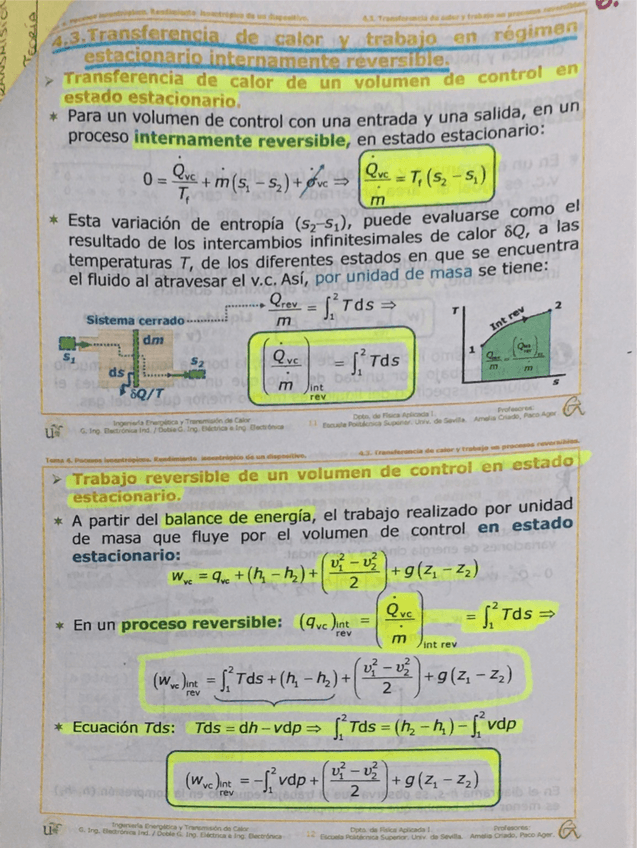 TEORÍA
4.3. Transferencia de calor y trabajo en procesos reversibles.
4.3.Transferencia de calor y trabajo en régimen
estacionario internamente reversible.
➢ Transferencia de calor de un volumen de control en
estado estacionario.
* Para un volumen de control con una entrada y una salida, en un
proceso internamente reversible, en estado estacionario:
0 = Q̇vc/Tf + ṁ(s₁ − s₂) + σ̇vc ⇒ Q̇vc/ṁ = Tf (s₂ − s₁)
* Esta variación de entropía (s₂–s₁), puede evaluarse como el
resultado de los intercambios infinitesimales de calor δQ, a las
temperaturas T, de los diferentes estados en que se encuentra
el fluido al atravesar el v.c. Así, por unidad de masa se tiene:
Sistema cerrado
Qrev/m = ∫₁² Tds ⇒
(Q̇vc/ṁ)int rev = ∫₁² Tds
s₁
dm
ds
s₂
δQ/T
T
Int rev
1
2
s
Ingeniería Energética y Transmisión de Calor
G. Ing. Electrónica Ind. / Doble G. Ing. Eléctrica e Ing. Electrónica
11
Dpto. de Física Aplicada I.
Escuela Politécnica Superior. Univ. de Sevilla.
Profesores:
Amelia Criado, Paco Ager
Tema 4. Procesos isoentrópicos. Rendimiento isoentrópico de un dispositivo.
4.3. Transferencia de calor y trabajo en procesos reversibles.
➢ Trabajo reversible de un volumen de control en estado
estacionario.
* A partir del balance de energía, el trabajo realizado por unidad
de masa que fluye por el volumen de control en estado
estacionario:
wvc = qvc + (h₁ − h₂) + (v₁² − v₂²)/2 + g(z₁ − z₂)
* En un proceso reversible: (qvc)int rev = (Q̇vc/ṁ)int rev = ∫₁² Tds ⇒
(wvc)int rev = ∫₁² Tds + (h₁ − h₂) + (v₁² − v₂²)/2 + g(z₁ − z₂)
* Ecuación Tds: Tds = dh − vdp ⇒ ∫₁² Tds = (h₂ − h₁) − ∫₁² vdp
(wvc)int rev = −∫₁² vdp + (v₁² − v₂²)/2 + g(z₁ − z₂)
Ingeniería Energética y Transmisión de Calor
G. Ing. Electrónica Ind. / Doble G. Ing. Eléctrica e Ing. Electrónica
12
Dpto. de Física Aplicada I.
Escuela Politécnica Superior. Univ. de Sevilla.
Profesores:
Amelia Criado, Paco Ager.